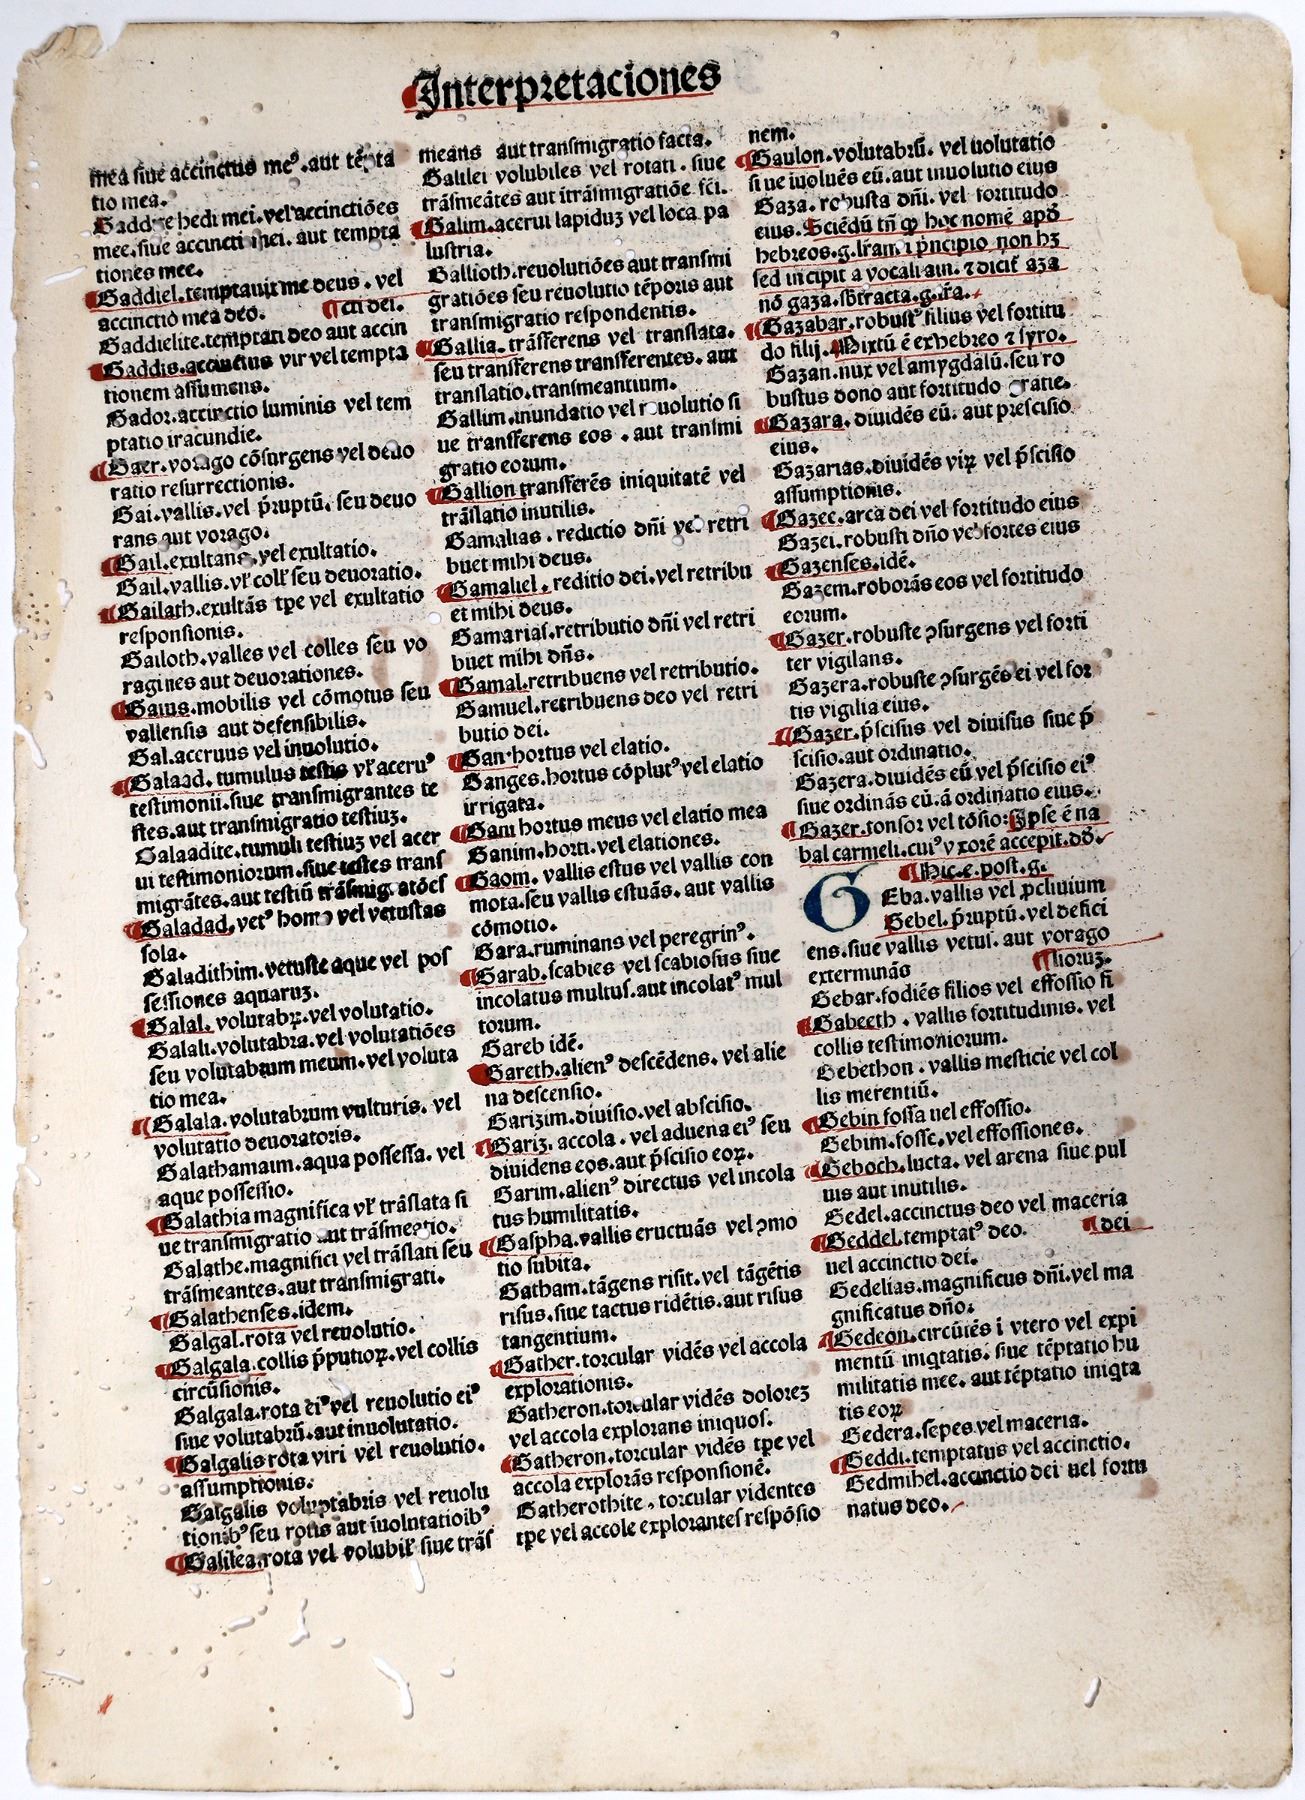 Interpretaciones
mea siue accinctus meꝰ. aut tēpta
tio mea.
Gaddi hedi mei. vel accinctiōes
mee. siue accincti mei. aut tempta
tiones mee.
Gaddiel. temptauit me deus. vel
accinctio mea deo. cti dei.
Gaddielite. temptati deo aut accin
Gaddis. accinctus vir vel tempta
tionem assumens.
Gador. accinctio luminis vel tem
ptatio iracundie.
Gaer. vorago cōsurgens vel deuo
ratio resurrectionis.
Gai. vallis. vel p̄ruptū. seu deuo
rans aut vorago.
Gail. exultans. vel exultatio.
Gail. vallis. vꝉ collꝭ seu deuoratio.
Gailath. exultās tꝑe vel exultatio
responsionis.
Gailoth. valles vel colles seu vo
ragines aut deuorationes.
Gaius. mobilis vel cōmotus seu
vallensis aut defensibilis.
Gal. aceruus vel inuolutio.
Galaad. tumulus testis vꝉ aceruꝰ
testimonii. siue transmigrantes te
stes. aut transmigratio testiuꝫ.
Galaadite. tumuli testiuꝫ vel acer
ui testimoniorum. siue testes trans
migrātes. aut testiū
Galadad. vetꝰ homo vel vetustas
sola.
Galadithim. vetuste aque vel pos
sessiones aquaruꝫ.
Galal. volutabꝝ. vel volutatio.
Galali. volutabra. vel volutatiōes
seu volutabrum meum. vel voluta
tio mea.
Galala. volutabrum vulturis. vel
volutatio deuoratoris.
Galathamaim. aqua possessa. vel
aque possessio.
Galathia magnifica vꝉ trāslata si
ue transmigratio aut trāsmeatio.
Galathe. magnifici vel trāslati seu
trāsmeantes. aut transmigrati.
Galathenses. idem.
Galgal. rota vel reuolutio.
Galgala. collis p̄putioꝝ. vel collis
circūsionis.
Galgala. rota eiꝰ vel reuolutio eiꝰ
siue volutabrū. aut inuolutatio.
Galgalis rota viri vel reuolutio.
assumptionis.
Galgalis voluptabris vel reuolu
tionibꝰ seu rotis aut īuolutatioibꝰ
Galilea. rota vel volubilꝭ siue trās
means aut transmigratio facta.
Galilei volubiles vel rotati. siue
trāsmeātes aut ītrāsmigratiōe fci.
Galim. acerui lapiduꝫ vel loca pa
lustria.
Gallioth. reuolutiōes aut transmi
gratiōes seu reuolutio tēporis aut
transmigratio respondentis.
Gallia. trāsferens vel translata.
seu transferens transferentes. aut
translatio. transmeantium.
Gallim. inundatio vel reuolutio si
ue transferens eos. aut transmi
gratio eorum.
Gallion transferēs iniquitatē vel
trāslatio inutilis.
Gamalias. redictio dñi vel retri
buet mihi deus.
Gamaliel. reditio dei. vel retribu
et mihi deus.
Gamarias. retributio dñi vel retri
buet mihi dñs.
Gamal. retribuens vel retributio.
Gamuel. retribuens deo vel retri
butio dei.
Gan. hortus vel elatio.
Ganges. hortus cōplutꝰ vel elatio
irrigata.
Gani hortus meus vel elatio mea
Ganim. horti. vel elationes.
Gaom. vallis estus vel vallis con
mota. seu vallis estuās. aut vallis
cōmotio.
Gara. ruminans vel peregrinꝰ.
Garab. scabies vel scabiosus siue
incolatus multus. aut incolatꝰ mul
torum.
Gareb idē.
Gareth. alienꝰ descēdens. vel alie
na descensio.
Garizim. diuisio. vel abscisio.
Gariz. accola. vel aduena eiꝰ seu
diuidens eos. aut p̄scisio eoꝝ.
Garim. alienꝰ directus vel incola
tus humilitatis.
Gaspha. vallis eructuās vel ꝯmo
tio subita.
Gatham. tāgens risit. vel tāgētis
risus. siue tactus ridētis. aut risus
tangentium.
Gather. torcular vidēs vel accola
explorationis.
Gatheron. torcular vidēs dolores
vel accola explorans iniquos.
Gatheron. torcular vidēs tꝑe vel
accola explorās responsionē.
Gatherothite. torcular videntes
tꝑe vel accole explorantes respōsio
nem.
Gaulon. volutabrū. vel uolutatio
siue iuoluēs eū. aut inuolutio eius
Gaza. robusta dñi. vel fortitudo
eius. Sciēdū tñ ꝙ hoc nomē apd̄
hebreos. g. lr̄am ī p̄ncipio non hꝫ
sed incipit a vocali ain. ⁊ dicit̄ aza
nō gaza. sbtracta. g. lr̄a.
Gazabar. robustꝰ filius vel fortitu
do filij. Mixtū ē ex hebreo ⁊ syro.
Gazan. nux vel amygdalū. seu ro
bustus dono aut fortitudo gratie.
Gazara. diuidēs eū. aut prescisio
eius.
Gazarias. diuidēs viꝝ vel p̄scisio
assumptionis.
Gazec. arca dei vel fortitudo eius
Gazei. robusti dño vel fortes eius
Gazenses. idē.
Gazem. roborās eos vel fortitudo
eorum.
Gazer. robuste ꝯsurgens vel forti
ter vigilans.
Gazera. robuste ꝯsurgēs ei vel for
tis vigilia eius.
Gazer. p̄scisus vel diuisus siue p̄
scisio. aut ordinatio.
Gazera. diuidēs eū vel p̄scisio eiꝰ
siue ordinās eū. ā ordinatio eius.
Gazer. tonsor vel tōsio: Ipse ē na
bal carmeli. cuiꝰ vxorē accepit. dd̄.
Hic. e. post. g.
GEba. vallis vel ꝓcliuium
Gebel. p̄ruptū. vel defici
ens. siue vallis vetus. aut vorago
exterminās lioruꝫ.
Gebar. fodiēs filios vel effossio fi
Gabeeth. vallis fortitudinis. vel
collis testimoniorum.
Gebethon. vallis mesticie vel col
lis merentiū.
Gebin fossa uel effossio.
Gebim. fosse. vel effossiones.
Geboch. lucta. vel arena siue pul
uis aut inutilis.
Gedel. accinctus deo vel maceria
Geddel. temptatꝰ deo. dei
uel accinctio dei.
Gedelias. magnificus dñi. vel ma
gnificatus dño.
Gedeon. circūiēs ī vtero vel expi
mentū iniꝗtatis. siue tēptatio hu
militatis mee. aut tēptatio iniꝗta
tis eoꝝ
Gedera. sepes. vel maceria.
Geddi. temptatus vel accinctio.
Gedmihel. accinctio dei uel fortu
natus deo.